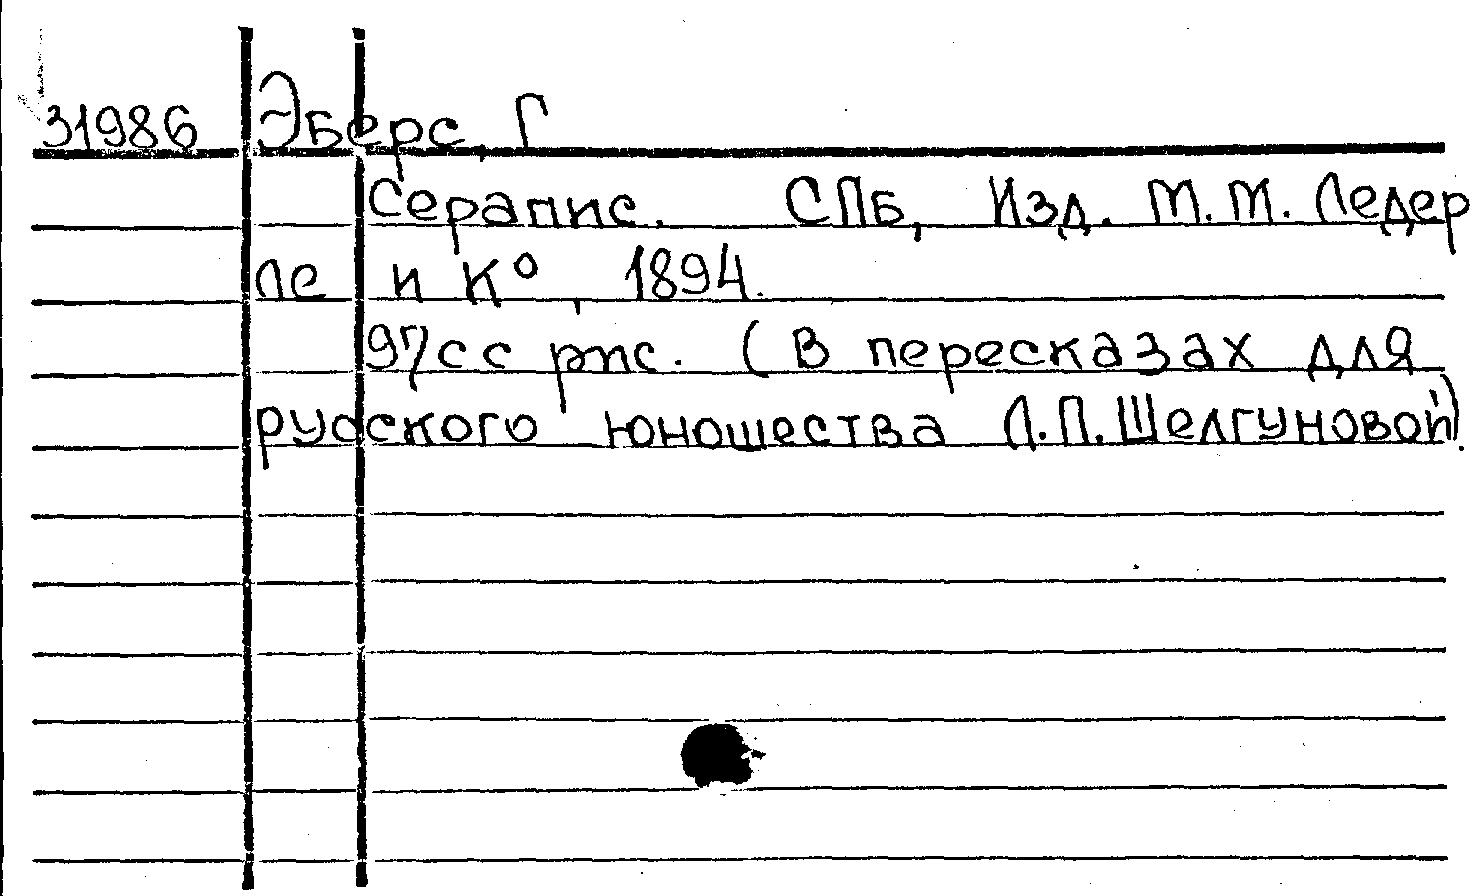 31986 Эберс, Г
Серапис. СПБ, Изд. М.М. Ледер
ле и К°, 1894.
97сс рпс. (В пересказах для
русского юношества Л.П.Шелгуновой).